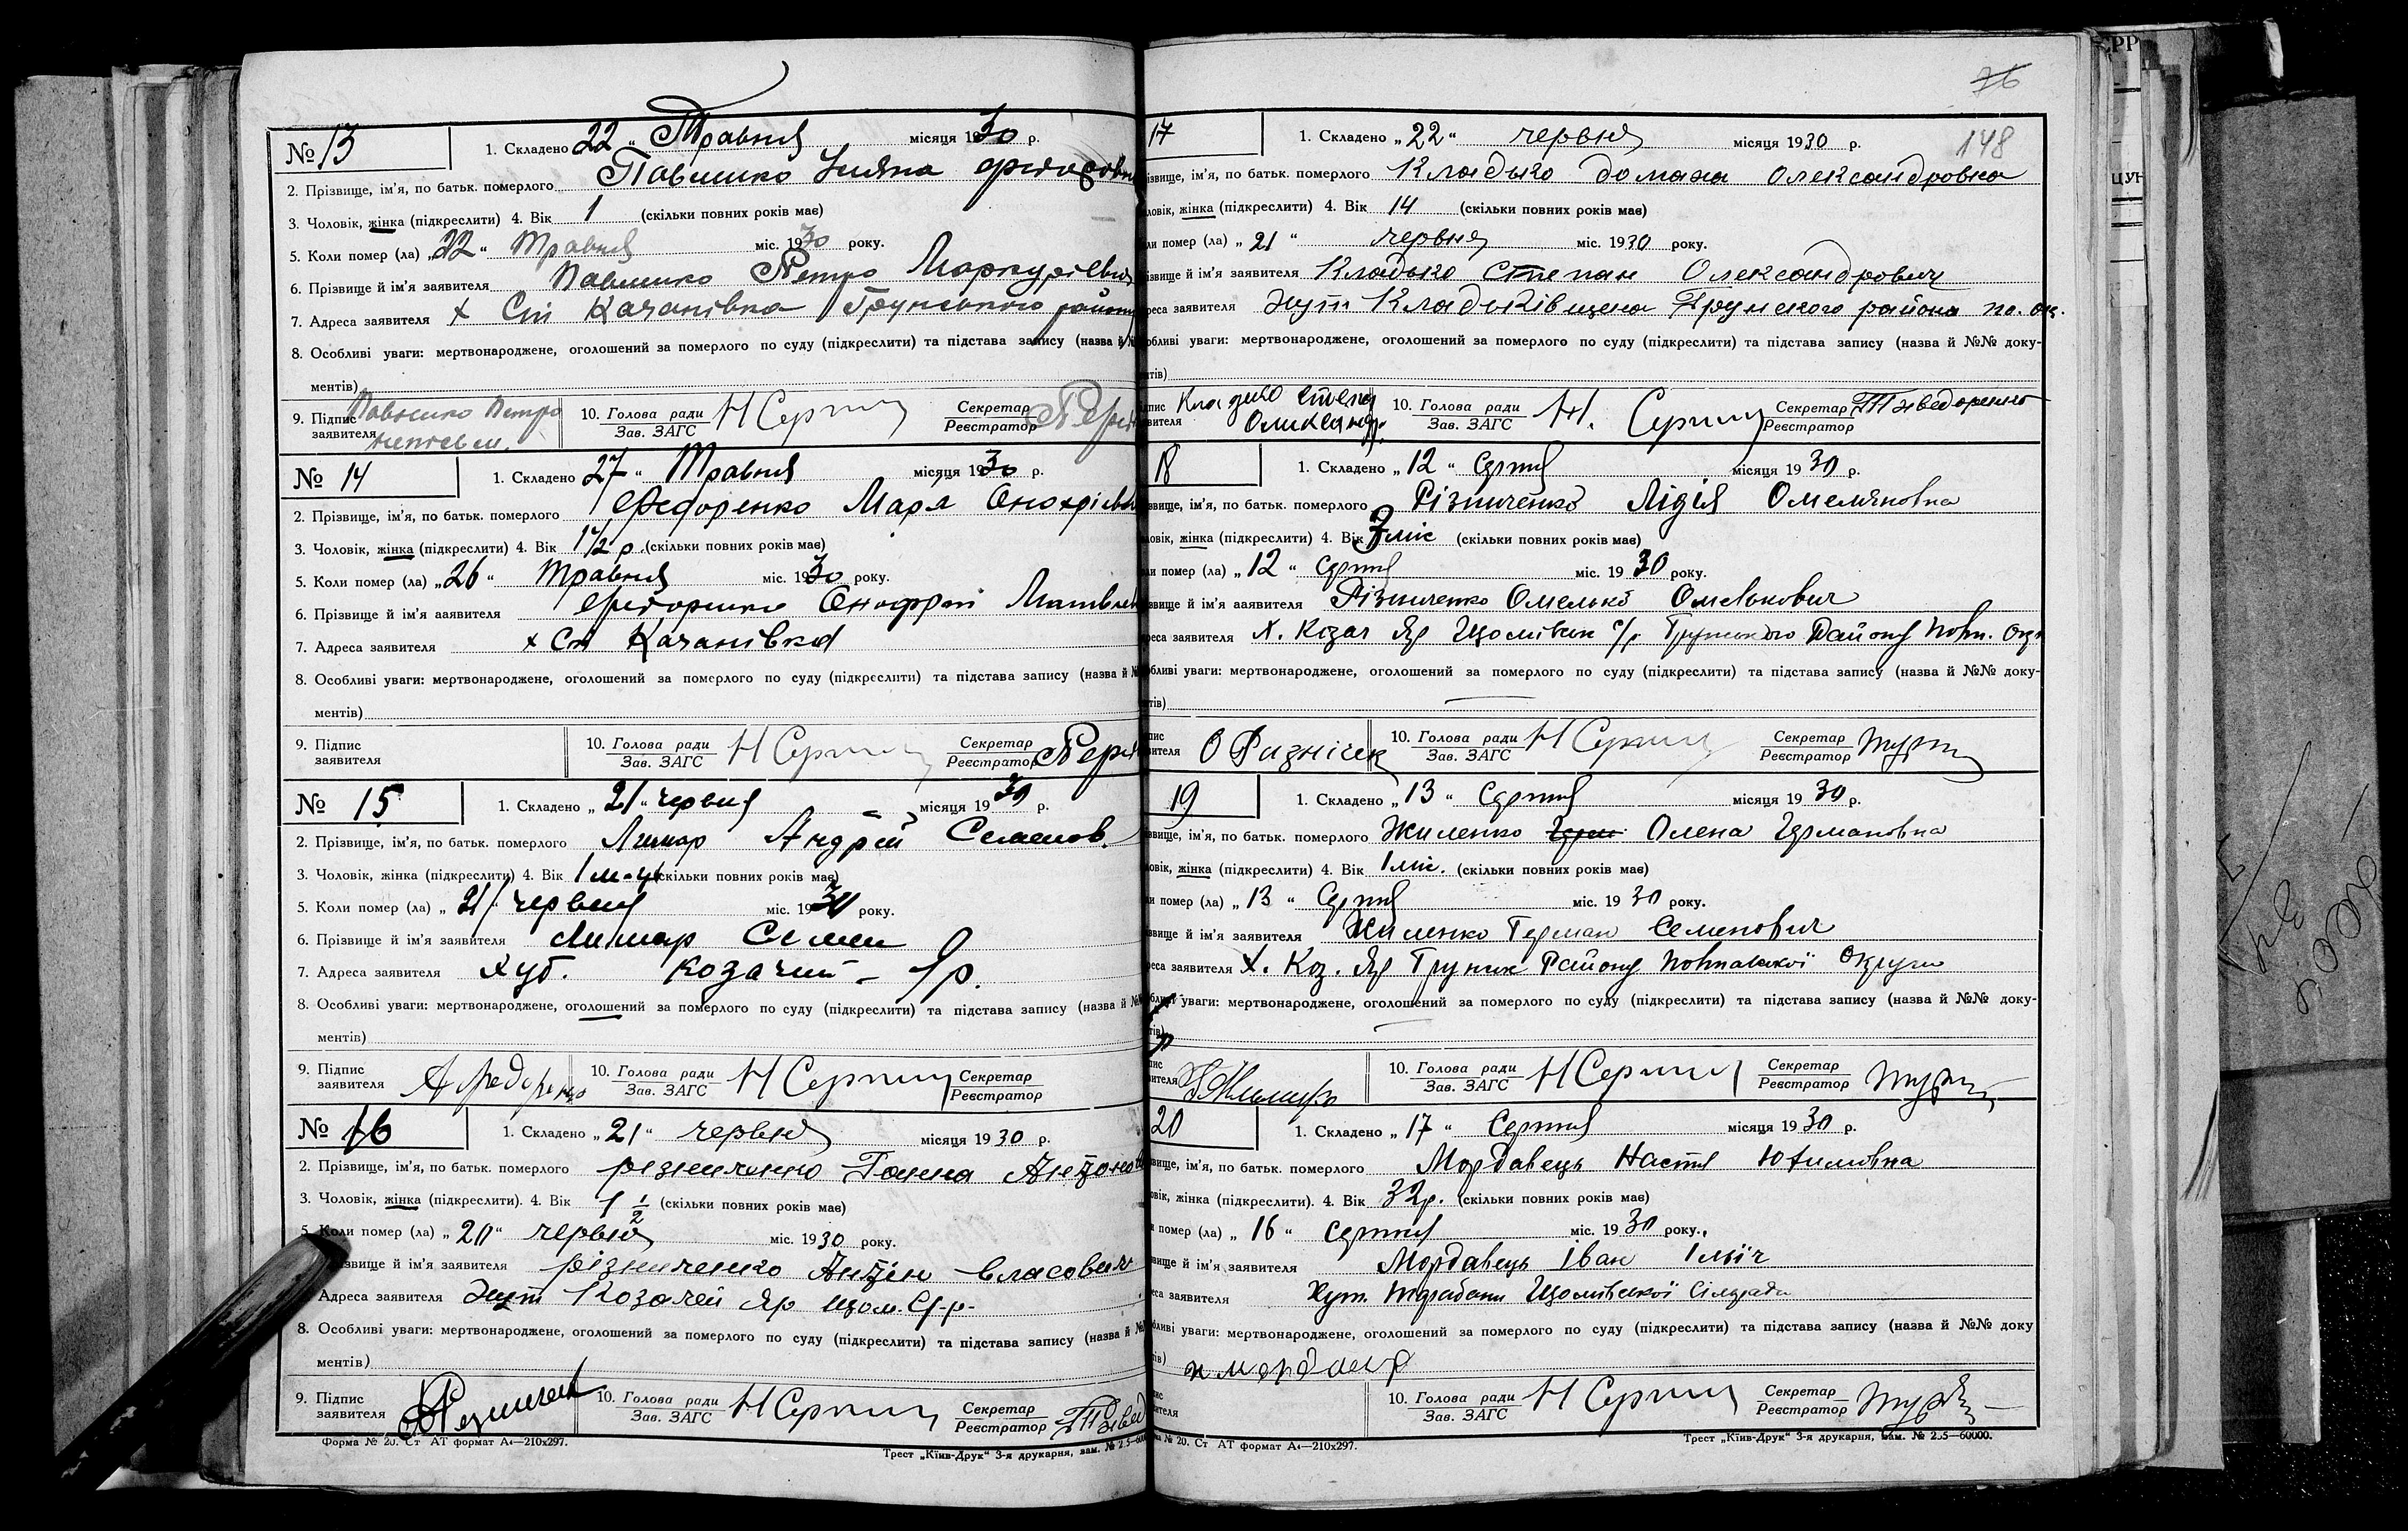 76
148
№ 13
1. Складено 22 " Травня місяця 1930 р.
2. Прізвище, ім'я, по батьк. померлого Павленко Уляна
3. Чоловік, жінка (підкреслити) 4. Вік 1 (скільки повних років має)
5. Коли помер (ла) „22" Травня міс. 1930 року.
6. Прізвище й ім'я заявителя Петро
7. Адреса заявителя х Ст Качанівка Грунського району
8. Особливі уваги: мертвонароджене, оголошений за померлого по суду (підкреслити) та підстава запису (назва й
ментів)
9. Підпис заявителя Петро 10. Голова ради Зав. ЗАГС Н Серпи Секретар Реєстратор
№ 14
1. Складено 27 " Травня місяця 1930 р.
2. Прізвище, ім'я, по батьк. померлого Федоренко Мар'я
3. Чоловік, жінка (підкреслити) 4. Вік 1 1/2 р. (скільки повних років має)
5. Коли помер (ла) „26" Травня міс. 1930 року.
6. Прізвище й ім'я заявителя Федоренко
7. Адреса заявителя х Ст Качанівка
8. Особливі уваги: мертвонароджене, оголошений за померлого по суду (підкреслити) та підстава запису (назва й
ментів)
9. Підпис заявителя 10. Голова ради Зав. ЗАГС Н Серпи Секретар Реєстратор
№ 15
1. Складено „21" червня місяця 1930 р.
2. Прізвище, ім'я, по батьк. померлого Лимар Андрій Семенов.
3. Чоловік, жінка (підкреслити) 4. Вік 1 м-ць (скільки повних років має)
5. Коли помер (ла) „21" червня міс. 1930 року.
6. Прізвище й ім'я заявителя Лимар Семен
7. Адреса заявителя хут. Козачий - Яр.
8. Особливі уваги: мертвонароджене, оголошений за померлого по суду (підкреслити) та підстава запису (назва й №№
ментів)
9. Підпис заявителя А Федоренко 10. Голова ради Зав. ЗАГС Н Серпи Секретар Реєстратор
№ 16
1. Складено „21" червня місяця 1930 р.
2. Прізвище, ім'я, по батьк. померлого різниченко Ганна Антонов
3. Чоловік, жінка (підкреслити). 4. Вік 1 1/2 (скільки повних років має)
5. Коли помер (ла) „20" червня міс. 1930 року.
звище й ім'я заявителя різниченко Антін власович
Адреса заявителя Хут Козачей Яр Щом. С-р-
8. Особливі уваги: мертвонароджене, оголошений за померлого по суду (підкреслити) та підстава запису (назва й №№
ментів)
9. Підпис заявителя 10. Голова ради Зав. ЗАГС Н Серпи Секретар Реєстратор
Форма № 20. Ст АТ формат А4—210х297.
Трест „Київ-Друк" 3-я друкарня, зам. № 2.5—600
17
1. Складено „22" червня місяця 1930 р.
ізвище, ім'я, по батьк. померлого Кладько домаха Олександровна
ловік, жінка (підкреслити) 4. Вік 14 (скільки повних років має)
ли помер (ла) „21" червня міс. 1930 року.
ізвище й ім'я заявителя Кладько Степан Олександрович
реса заявителя Хут Кладьківщена Грунского района по. ок.
обливі уваги: мертвонароджене, оголошений за померлого по суду (підкреслити) та підстава запису (назва й №№ доку-
нтів)
дпис явителя 10. Голова ради Зав. ЗАГС Н. Серпи Секретар Реєстратор
18
1. Складено „12" Серпня місяця 1930 р.
звище, ім'я, по батьк. померлого Різниченко Лідія Омеляновна
ловік, жінка (підкреслити) 4. Вік 7 міс (скільки повних років має)
ли помер (ла) „12" Серпня міс. 1930 року.
звище й ім'я заявителя Різниченко Омелько Омелькович
реса заявителя Х. Козач Яр с/р Грунського Району Полт. Окр
обливі уваги: мертвонароджене, оголошений за померлого по суду (підкреслити) та підстава запису (назва й №№ доку-
тів)
пис вителя О 10. Голова ради Зав. ЗАГС Н Серпи Секретар Реєстратор
19
1. Складено „13" Серпня місяця 1930 р.
звище, ім'я, по батьк. померлого Жиленко Олена Германовна
ловік, жінка (підкреслити) 4. Вік 1 міс. (скільки повних років має)
ли помер (ла) „13" Серпня міс. 1930 року.
звище й ім'я заявителя Жиленко Герман Семенович
реса заявителя Х. Коз. Яр Грунськ Району Полтавської Округи
обливі уваги: мертвонароджене, оголошений за померлого по суду (підкреслити) та підстава запису (назва й №№ доку-
тів)
пис вителя 10. Голова ради Зав. ЗАГС Н Серпи Секретар Реєстратор
20
1. Складено „17" Серпня місяця 1930 р.
звище, ім'я, по батьк. померлого Мордавець Настя Юхимовна
овік, жінка (підкреслити). 4. Вік 32 р. (скільки повних років має)
и помер (ла) „16" серпня міс. 1930 року.
звище й ім'я заявителя Мордавець Іван Ілліч
еса заявителя Хут. Сільради
бливі уваги: мертвонароджене, оголошений за померлого по суду (підкреслити) та підстава запису (назва й №№ доку
тів)
10. Голова ради Зав. ЗАГС Н Серпи Секретар Реєстратор
№ 20. Ст АТ формат А4—210х297.
Трест „Київ-Друк" 3-я друкарня, зам. № 2.5—60000.